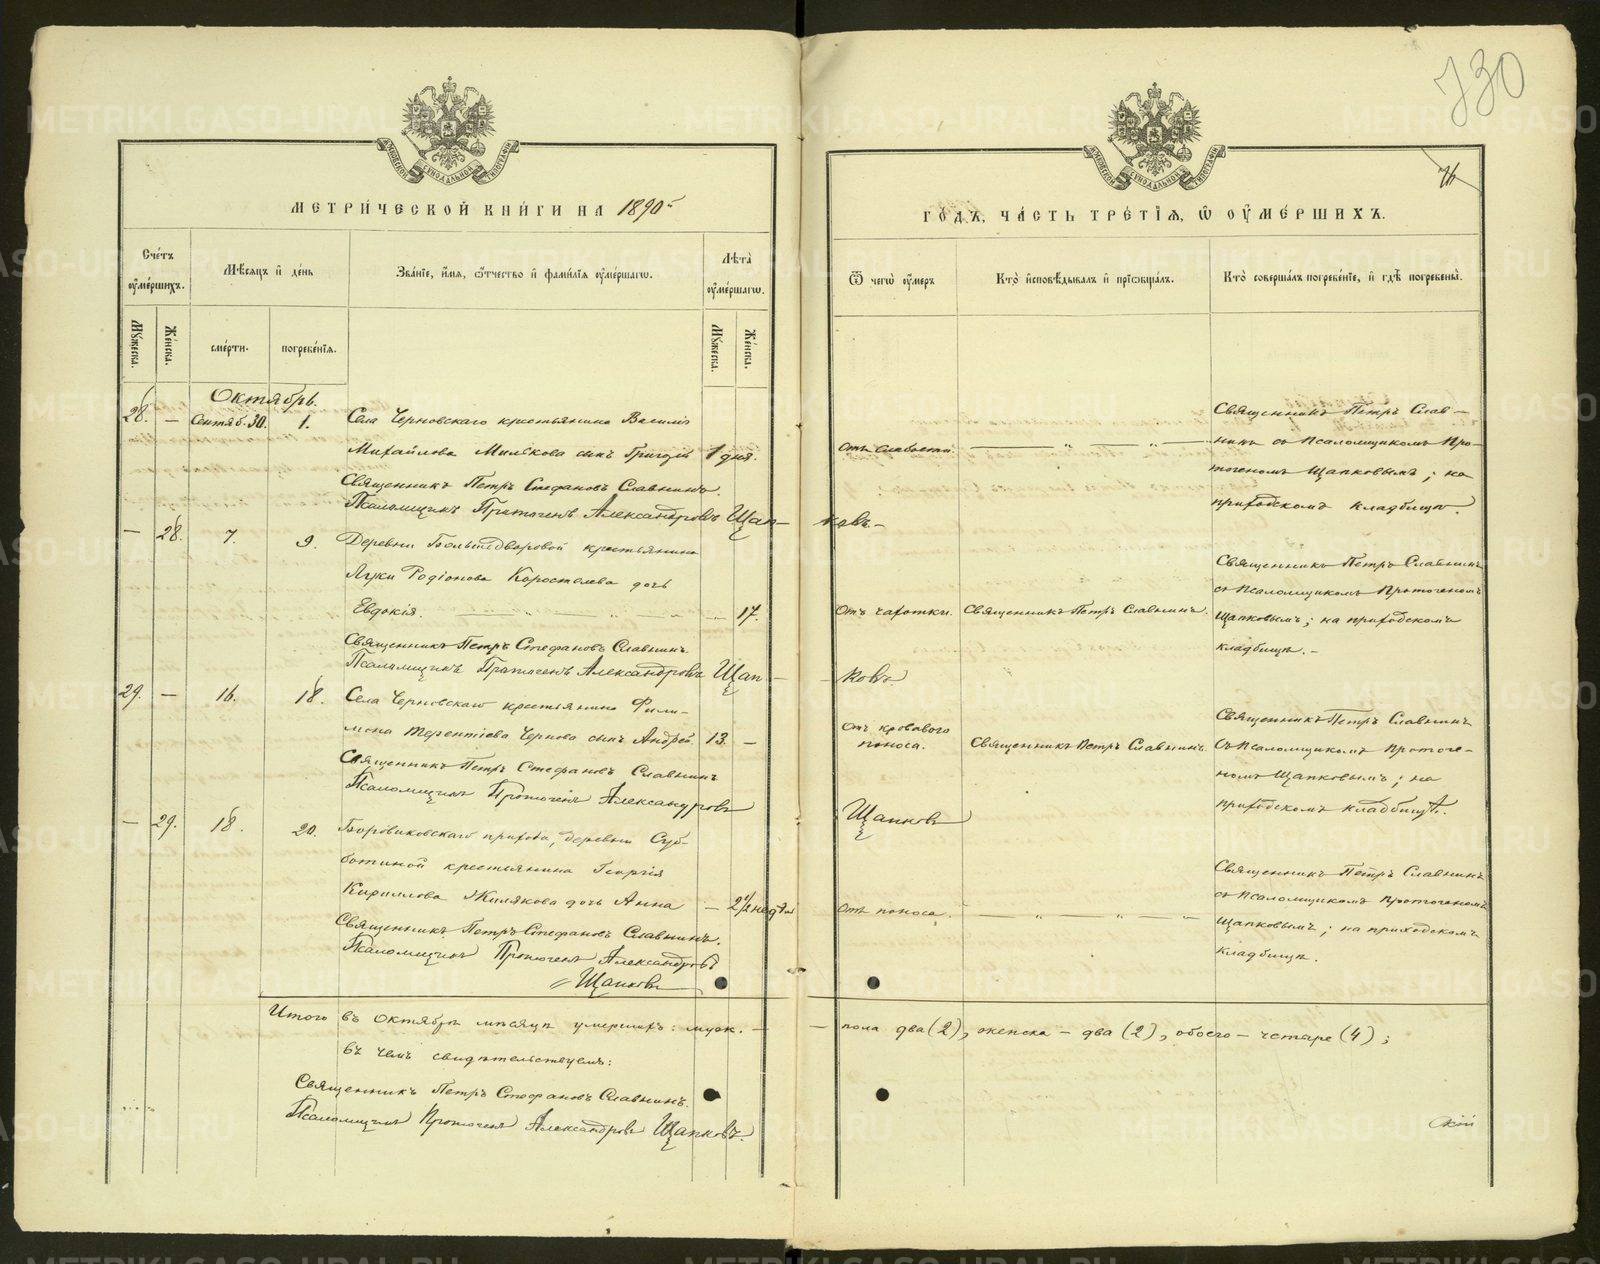 730
76
МЕТРИ́ЧЕСКОЙ КНИ́ГИ НА 1890
ГО́ДЪ, ЧА́СТЬ ТРЕ́ТІЯ, Ѿ ОУ҆МЕ́РШИХЪ.
Сче́тъ оу҆ме́ршихъ.
Мѣ́сяцъ и҆ де́нь
Зва́ніе, и҆́мя, ѻ҆́тчество и҆ фами́лія оу҆ме́ршагѡ.
Лѣ́та оу҆ме́ршагѡ.
Ѿ чегѡ̀ оу҆́меръ
Кто̀ и҆сповѣ́дывалъ и҆ прїѡбща́лъ.
Кто̀ соверша́лъ погребе́ніе, и҆ гдѣ̀ погребены̀.
Му́жеска.
Же́нска.
сме́рти.
погребе́нія.
Му́жеска.
Же́нска.
Октябрь.
28. — Сентяб. 30. 1. Села Черновскаго крестьянина Василія
Михайлова Милькова сынъ Григорій 1 дня.
Священникъ Петръ Стефановъ Славнинъ.
Псаломщикъ Протогенъ Александровъ Щап-
ковъ-
Отъ слабости. — „ — „ —
Священникъ Петръ Слав-
нинъ съ Псаломщикомъ Про-
тогеномъ Щапковымъ; на
приходскомъ кладбищѣ.
— 28. 7. 9. Деревни Большедворовой крестьянина
Луки Родіонова Коростелева дочь
Евдокія. — „ — „ — 17.
Священникъ Петръ Стефановъ Славнинъ.
Псаломщикъ Протогенъ Александровъ Щап-
ковъ.
Отъ чахотки. Священникъ Петръ Славнинъ.
Священникъ Петръ Славнинъ
съ Псаломщикомъ Протогеномъ
Щапковымъ; на приходскомъ
кладбищѣ. -
29. — 16. 18. Села Черновскаго крестьянина Фили-
мона Терентіева Чернова сынъ Андрей. 13. —
Священникъ Петръ Стефановъ Славнинъ
Псаломщикъ Протогенъ Александровъ
Щапковъ
Отъ кроваваго
поноса.
Священникъ Петръ Славнинъ.
Священникъ Петръ Славнинъ
съ Псаломщикомъ Протоге-
номъ Щапковымъ; на
приходскомъ кладбищѣ.
— 29. 18. 20. Боровиковскаго прихода, деревни Суб-
ботиной крестьянина Георгія
Кириллова Жилякова дочь Анна — 2½ недѣл
Священникъ Петръ Стефановъ Славнинъ.
Псаломщикъ Протогенъ Александровъ
Щапковъ
Отъ поноса. — „ — „ —
Священникъ Петръ Славнинъ
съ Псаломщикомъ Протогеномъ
Щапковымъ; на приходскомъ
кладбищѣ.
Итого въ Октябрѣ мѣсяцѣ умершихъ: муж. — — пола два (2), женска — два (2), обоего — четыре (4);
въ чемъ свидѣтельствуемъ:
Священникъ Петръ Стефановъ Славнинъ.
Псаломщикъ Протогенъ Александровъ Щапковъ.
METRIKI.GASO-URAL.RU